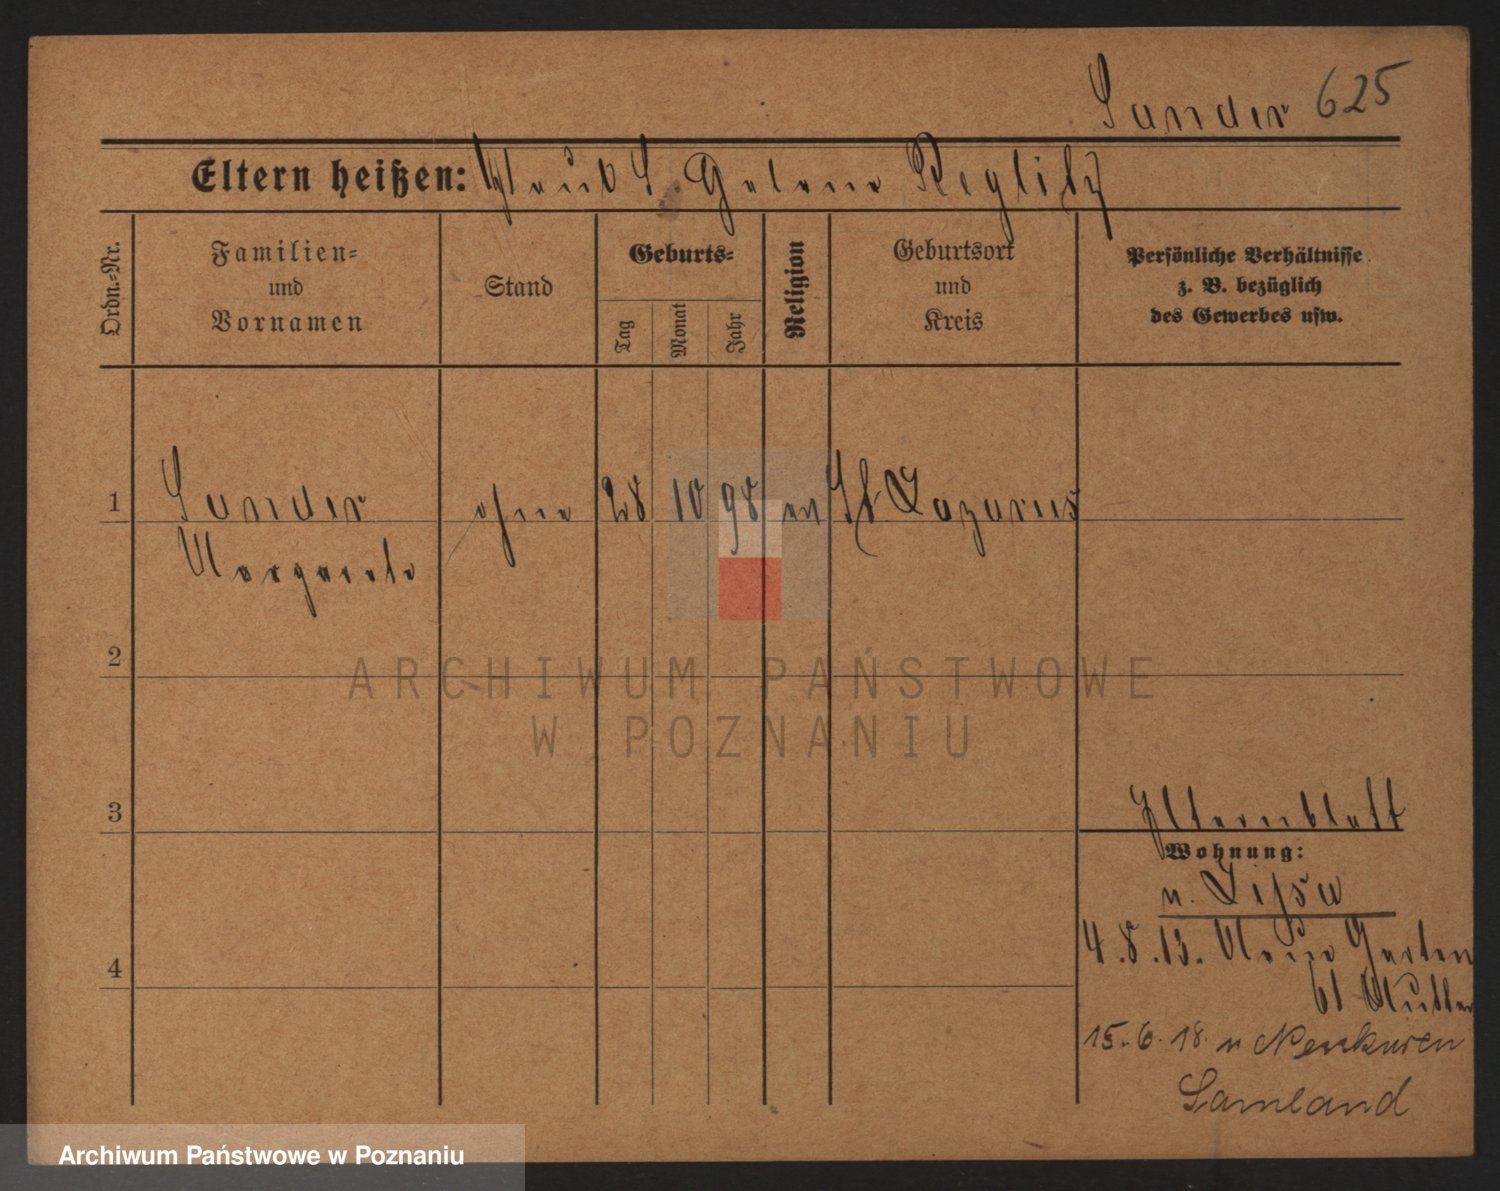 Sander 625
Eltern heißen: S. Helene Reglitz
Ordn.-Nr.
Familien-
und
Vornamen
Stand
Geburts-
Tag
Monat
Jahr
Religion
Geburtsort
und
Kreis
Persönliche Verhältnisse
z. B. bezüglich
des Gewerbes usw.
1 Sander ohne 28 10 98 ev St Lazarus
Margarete
2
ARCHIWUM PAŃSTWOWE
W POZNANIU
3
Elternblatt
Wohnung:
n. Lissa
4
4.8.13. Neue Garten
61 Mutter
15.6.18. n Neukuren
Samland
Archiwum Państwowe w Poznaniu